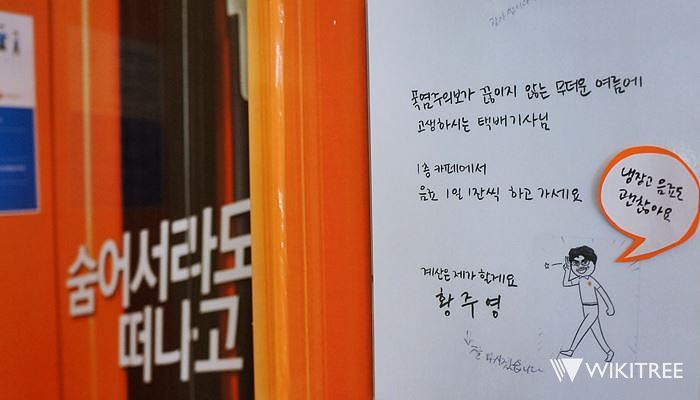 숨어서라도
떠나고
폭염주의보가 끊이지 않는 무더운 여름에
고생하시는 택배기사님
1층 카페에서
음료 1일 1잔씩 하고 가세요
냉장고 음료도
괜찮아요
계산은 제가 할게요
황주영
잘 마시겠습니다
WIKITREE